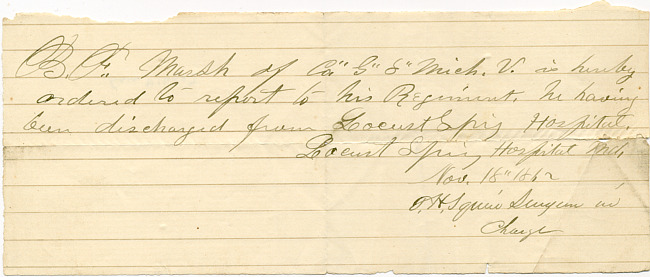 B. F. Marsh of Co "G" 8" Mich. V. is hereby
ordered to report to his Regiment, he having
been discharged from Locust Sprig Hospital.
Locust Sprig Hospital Md.
Nov. 18" 1862
T. H. Squire Surgeon in
Charge